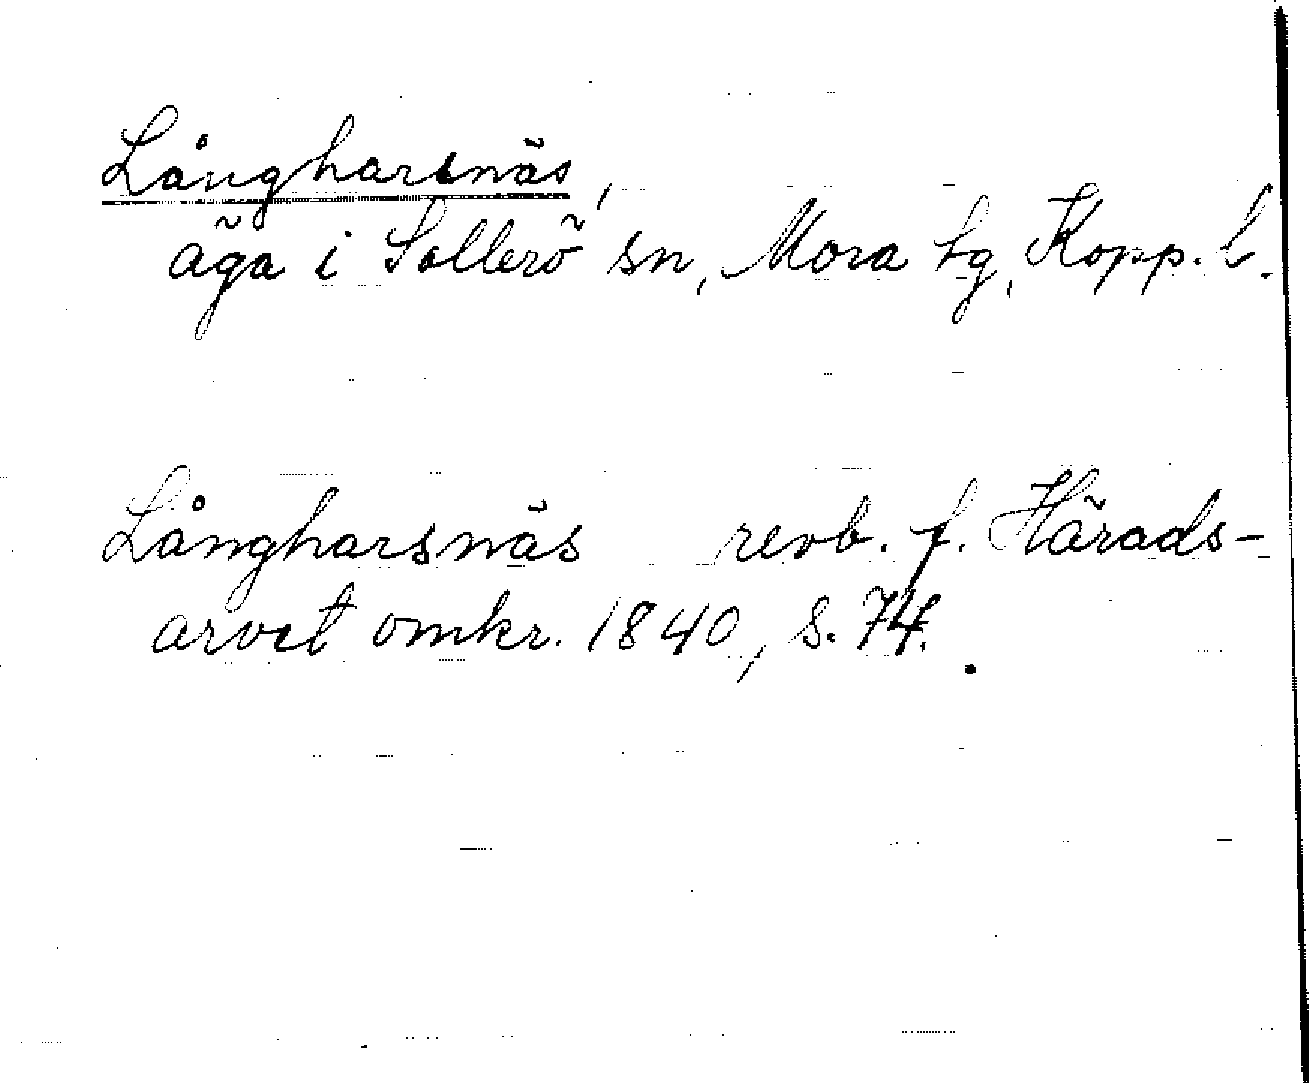 Långharsnäs,
äga i Sollerö sn, Mora tg, Kopp. l.
Långharsnäs revb. f. Härads-
arvet omkr. 1840, s. 74.